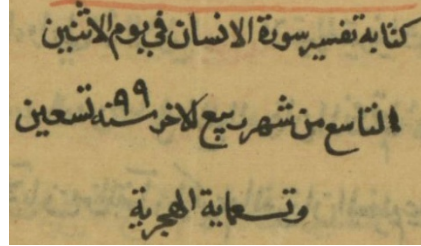 كتابة تفسير سورة الانسان في يوم الاثنين
التاسع من شهر ربيع الاخر سنه ٩٩ تسعين
وتسعماية الهجرية